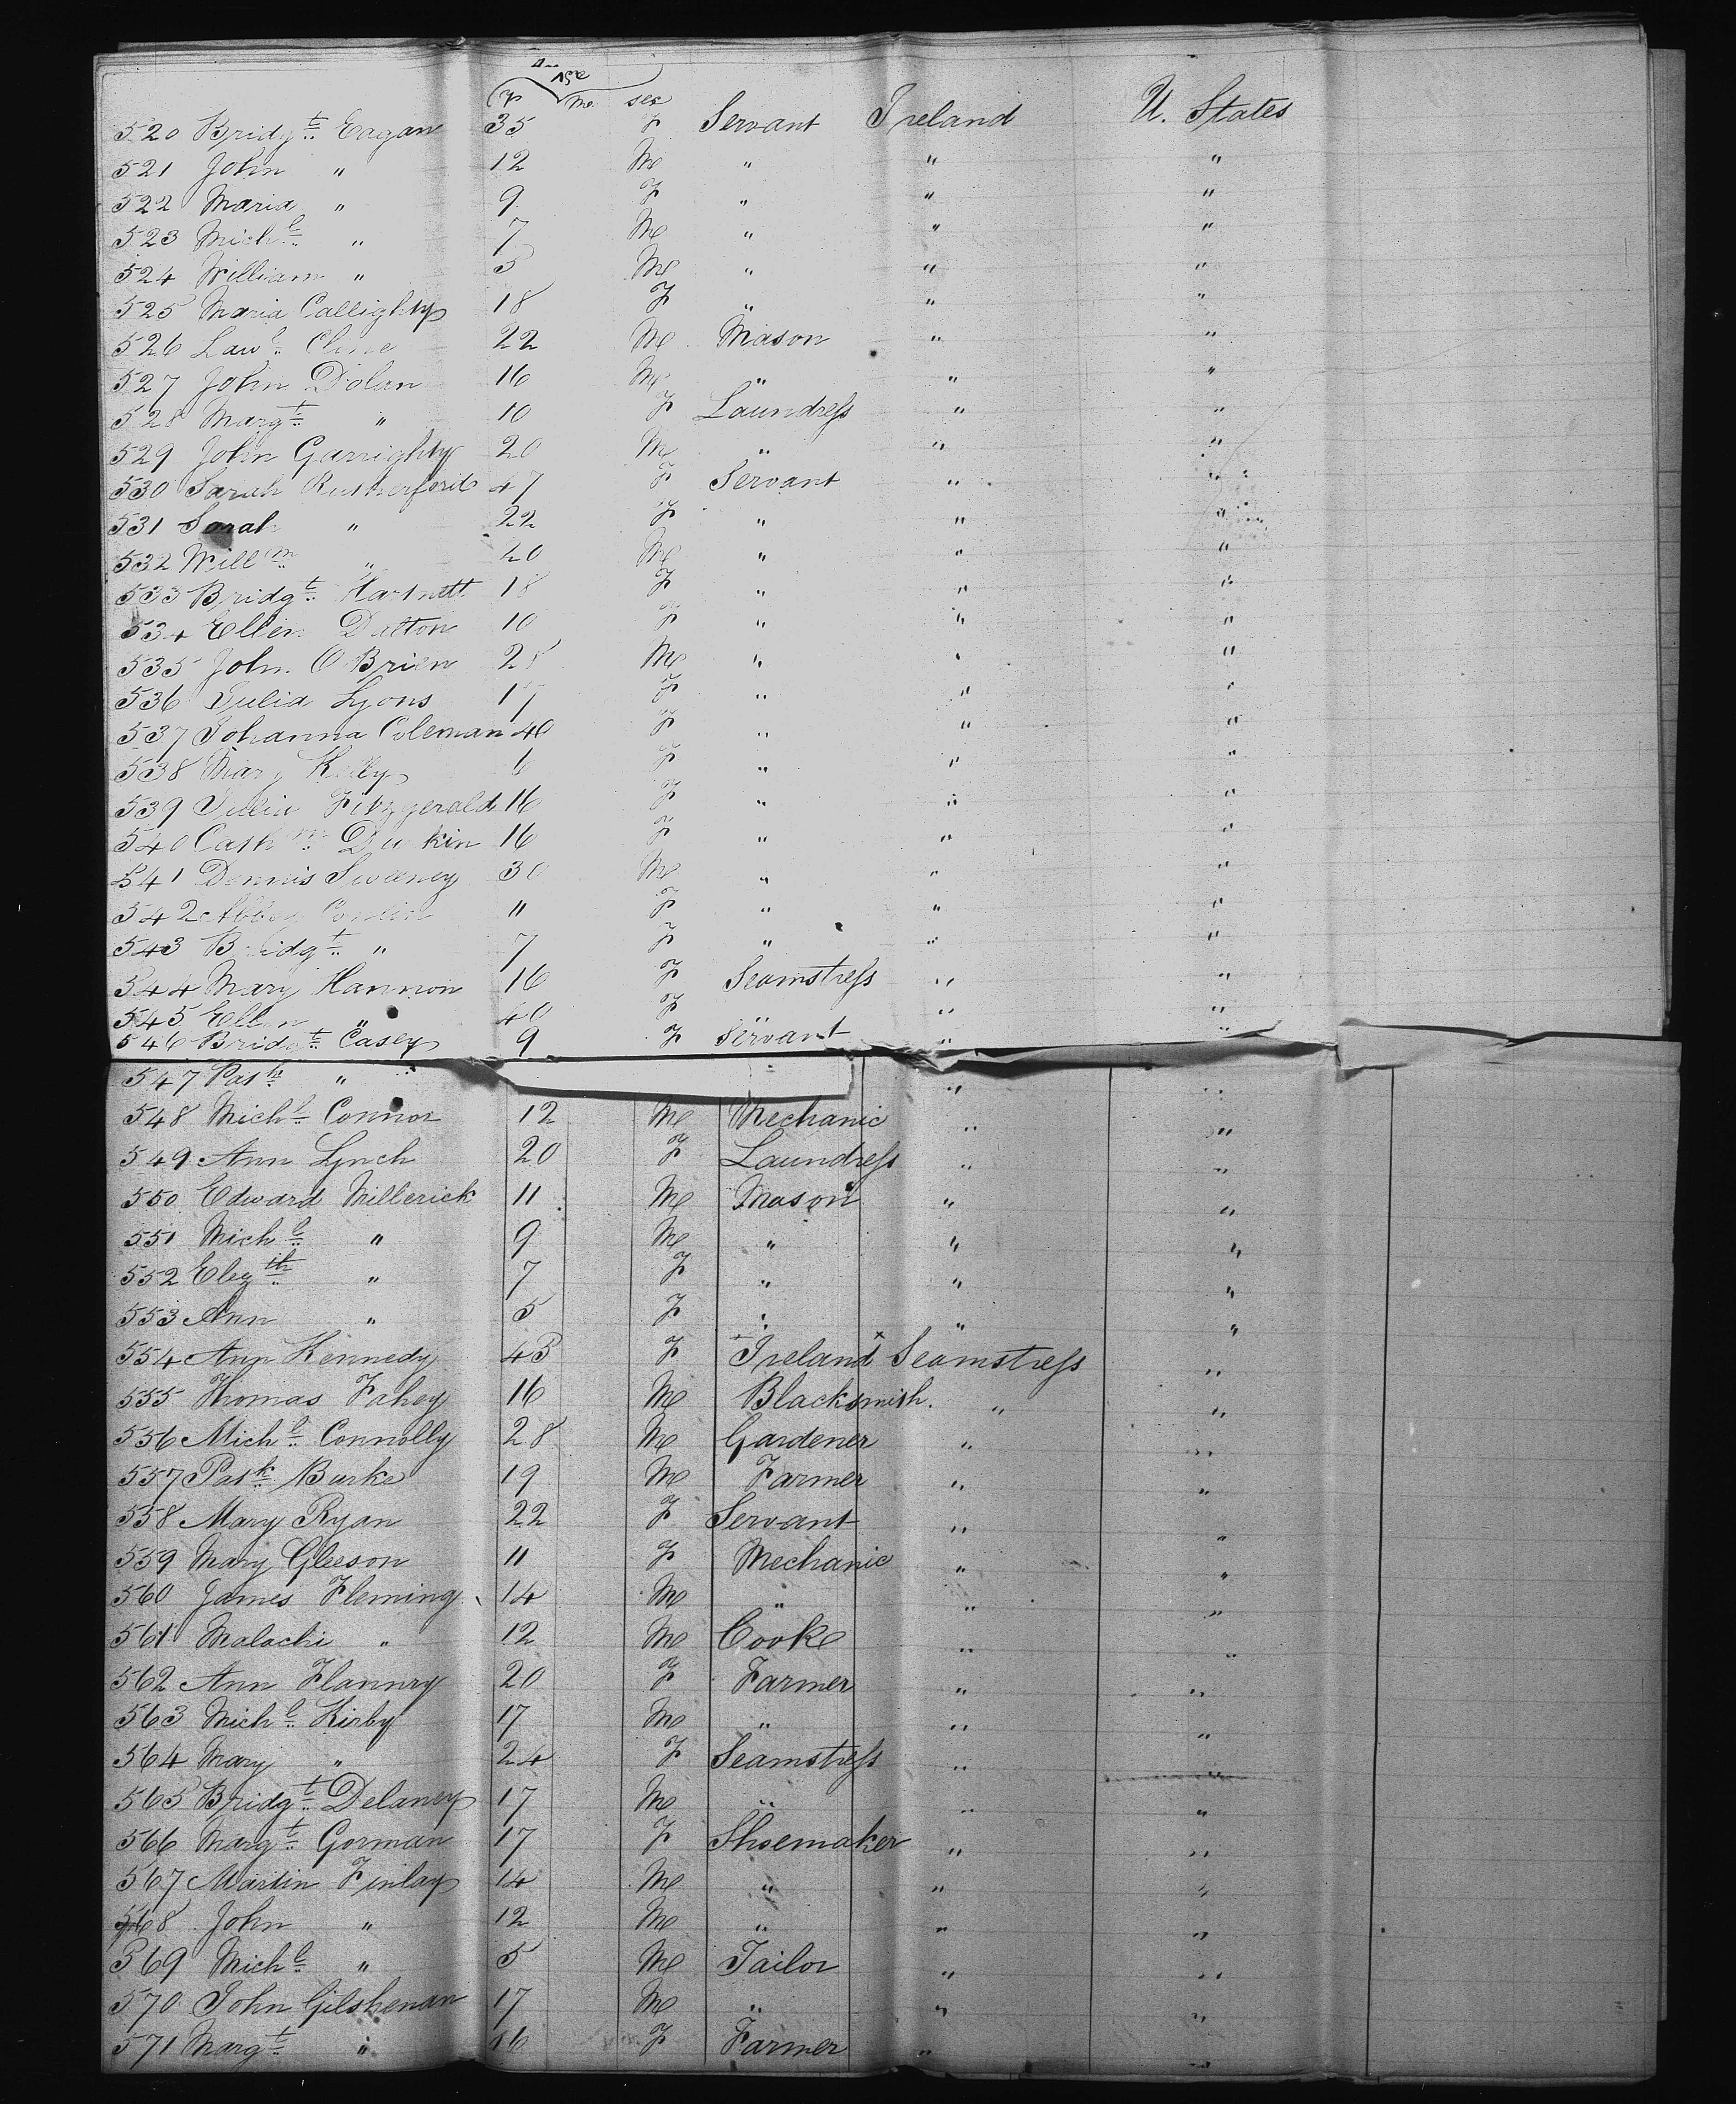 Age
Y M sex
520 Bridgt. Eagan 35 F Servant Ireland U. States
521 John " 12 M " " "
522 Maria " 9 F " " "
523 Michl. " 7 M " " "
524 William " 5 M " " "
525 Maria Callighty 18 F " " "
526 Lawc. Cline 22 M Mason " "
527 John Dolan 16 M " " "
528 Margt. " 10 F Laundress " "
529 John Garrighty 20 M " " "
530 Sarah Rutherford 47 F Servant " "
531 Sarah " 22 F " " "
532 Willm. " 20 M " " "
533 Bridgt. Hartnett 18 F " " "
534 Ellen Dalton 10 F " " "
535 John O'Brien 28 M " " "
536 Julia Lyons 17 F " " "
537 Johanna Coleman 40 F " " "
538 Mary Kelly F " " "
539 Julia Fitzgerald 16 F " " "
540 Cathn. Durkin 16 F " " "
541 Dennis Sweeney 30 M " " "
542 Abbey " F " " "
543 Bridgt. " 7 F " " "
544 Mary Hannon 16 F Seamstress " "
545 Ellen " 40 F " " "
546 Bridgt. Casey 9 F Servant " "
547 Patk. " " "
548 Michl. Connor 12 M Mechanic " "
549 Ann Lynch 20 F Laundress " "
550 Edward Millerick 11 M Mason " "
551 Michl. " 9 M " " "
552 Elezth. " 7 F " " "
553 Ann " 5 F " " "
554 Ann Kennedy 43 F Ireland Seamstress "
555 Thomas Fahey 16 M Blacksmith. " "
556 Michl. Connolly 28 M Gardener " "
557 Patk. Burke 19 M Farmer " "
558 Mary Ryan 22 F Servant " "
559 Mary Gleeson 11 F Mechanic " "
560 James Fleming 14 M " " "
561 Malachi " 12 M Cooke " "
562 Ann Flannry 20 F Farmer " "
563 Michl. Kirby 17 M " " "
564 Mary " 24 F Seamstress " "
565 Bridgt. Delaney 17 M " " "
566 Margt. Gorman 17 F Shoemaker " "
567 Martin Finlay 14 M " " "
568 John " 12 M " " "
569 Michl. " 5 M Tailor " "
570 John Gilshenan 17 M " " "
571 Margt. " 16 F Farmer " "